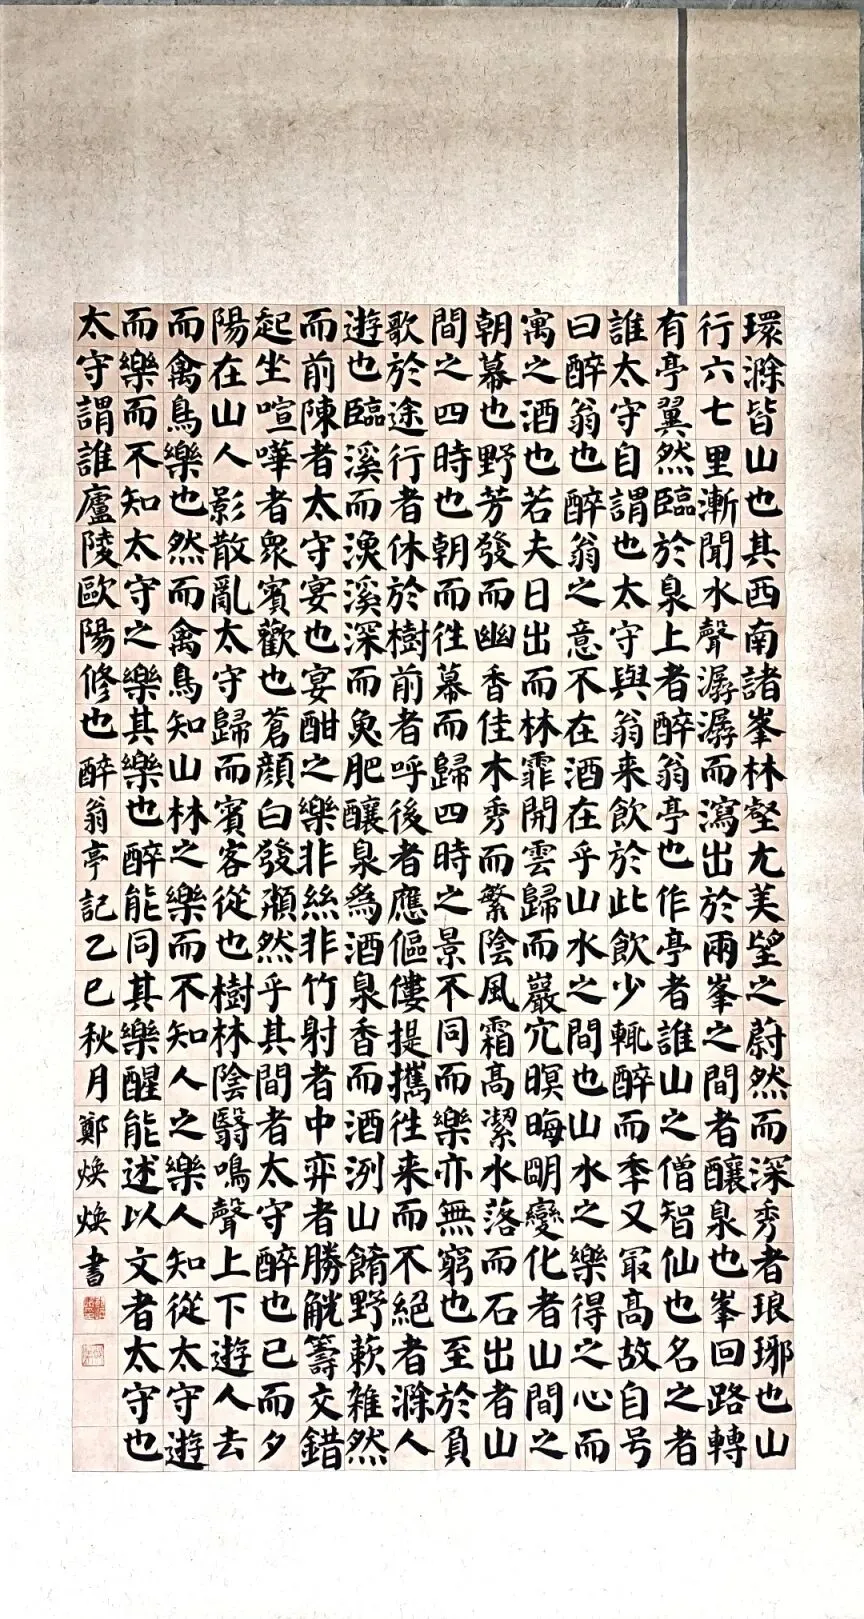 環滁皆山也其西南諸峯林壑尤美望之蔚然而深秀者琅琊也山
行六七里漸聞水聲潺潺而瀉出於兩峯之間者釀泉也峯回路轉
有亭翼然臨於泉上者醉翁亭也作亭者誰山之僧智仙也名之者
誰太守自謂也太守與翁来飲於此飲少輒醉而秊又冣高故自号
曰醉翁也醉翁之意不在酒在乎山水之間也山水之樂得之心而
寓之酒也若夫日出而林霏開雲歸而巖穴暝晦明變化者山間之
朝幕也野芳發而幽香佳木秀而繁陰風霜高潔水落而石出者山
間之四時也朝而往幕而歸四時之景不同而樂亦無窮也至於負
歌於途行者休於樹前者呼後者應傴僂提攜往来而不絕者滁人
遊也臨溪而漁溪深而魚肥釀泉爲酒泉香而酒洌山餚野蔌雜然
而前陳者太守宴也宴酣之樂非絲非竹射者中弈者勝觥籌交錯
起坐喧嘩者衆賓歡也蒼顏白發頹然乎其間者太守醉也已而夕
陽在山人影散亂太守歸而賓客從也樹林陰翳鳴聲上下遊人去
而禽鳥樂也然而禽鳥知山林之樂而不知人之樂人知從太守遊
而樂而不知太守之樂其樂也醉能同其樂醒能述以文者太守也
太守謂誰廬陵歐陽修也醉翁亭記乙巳秋月鄭煥煥書